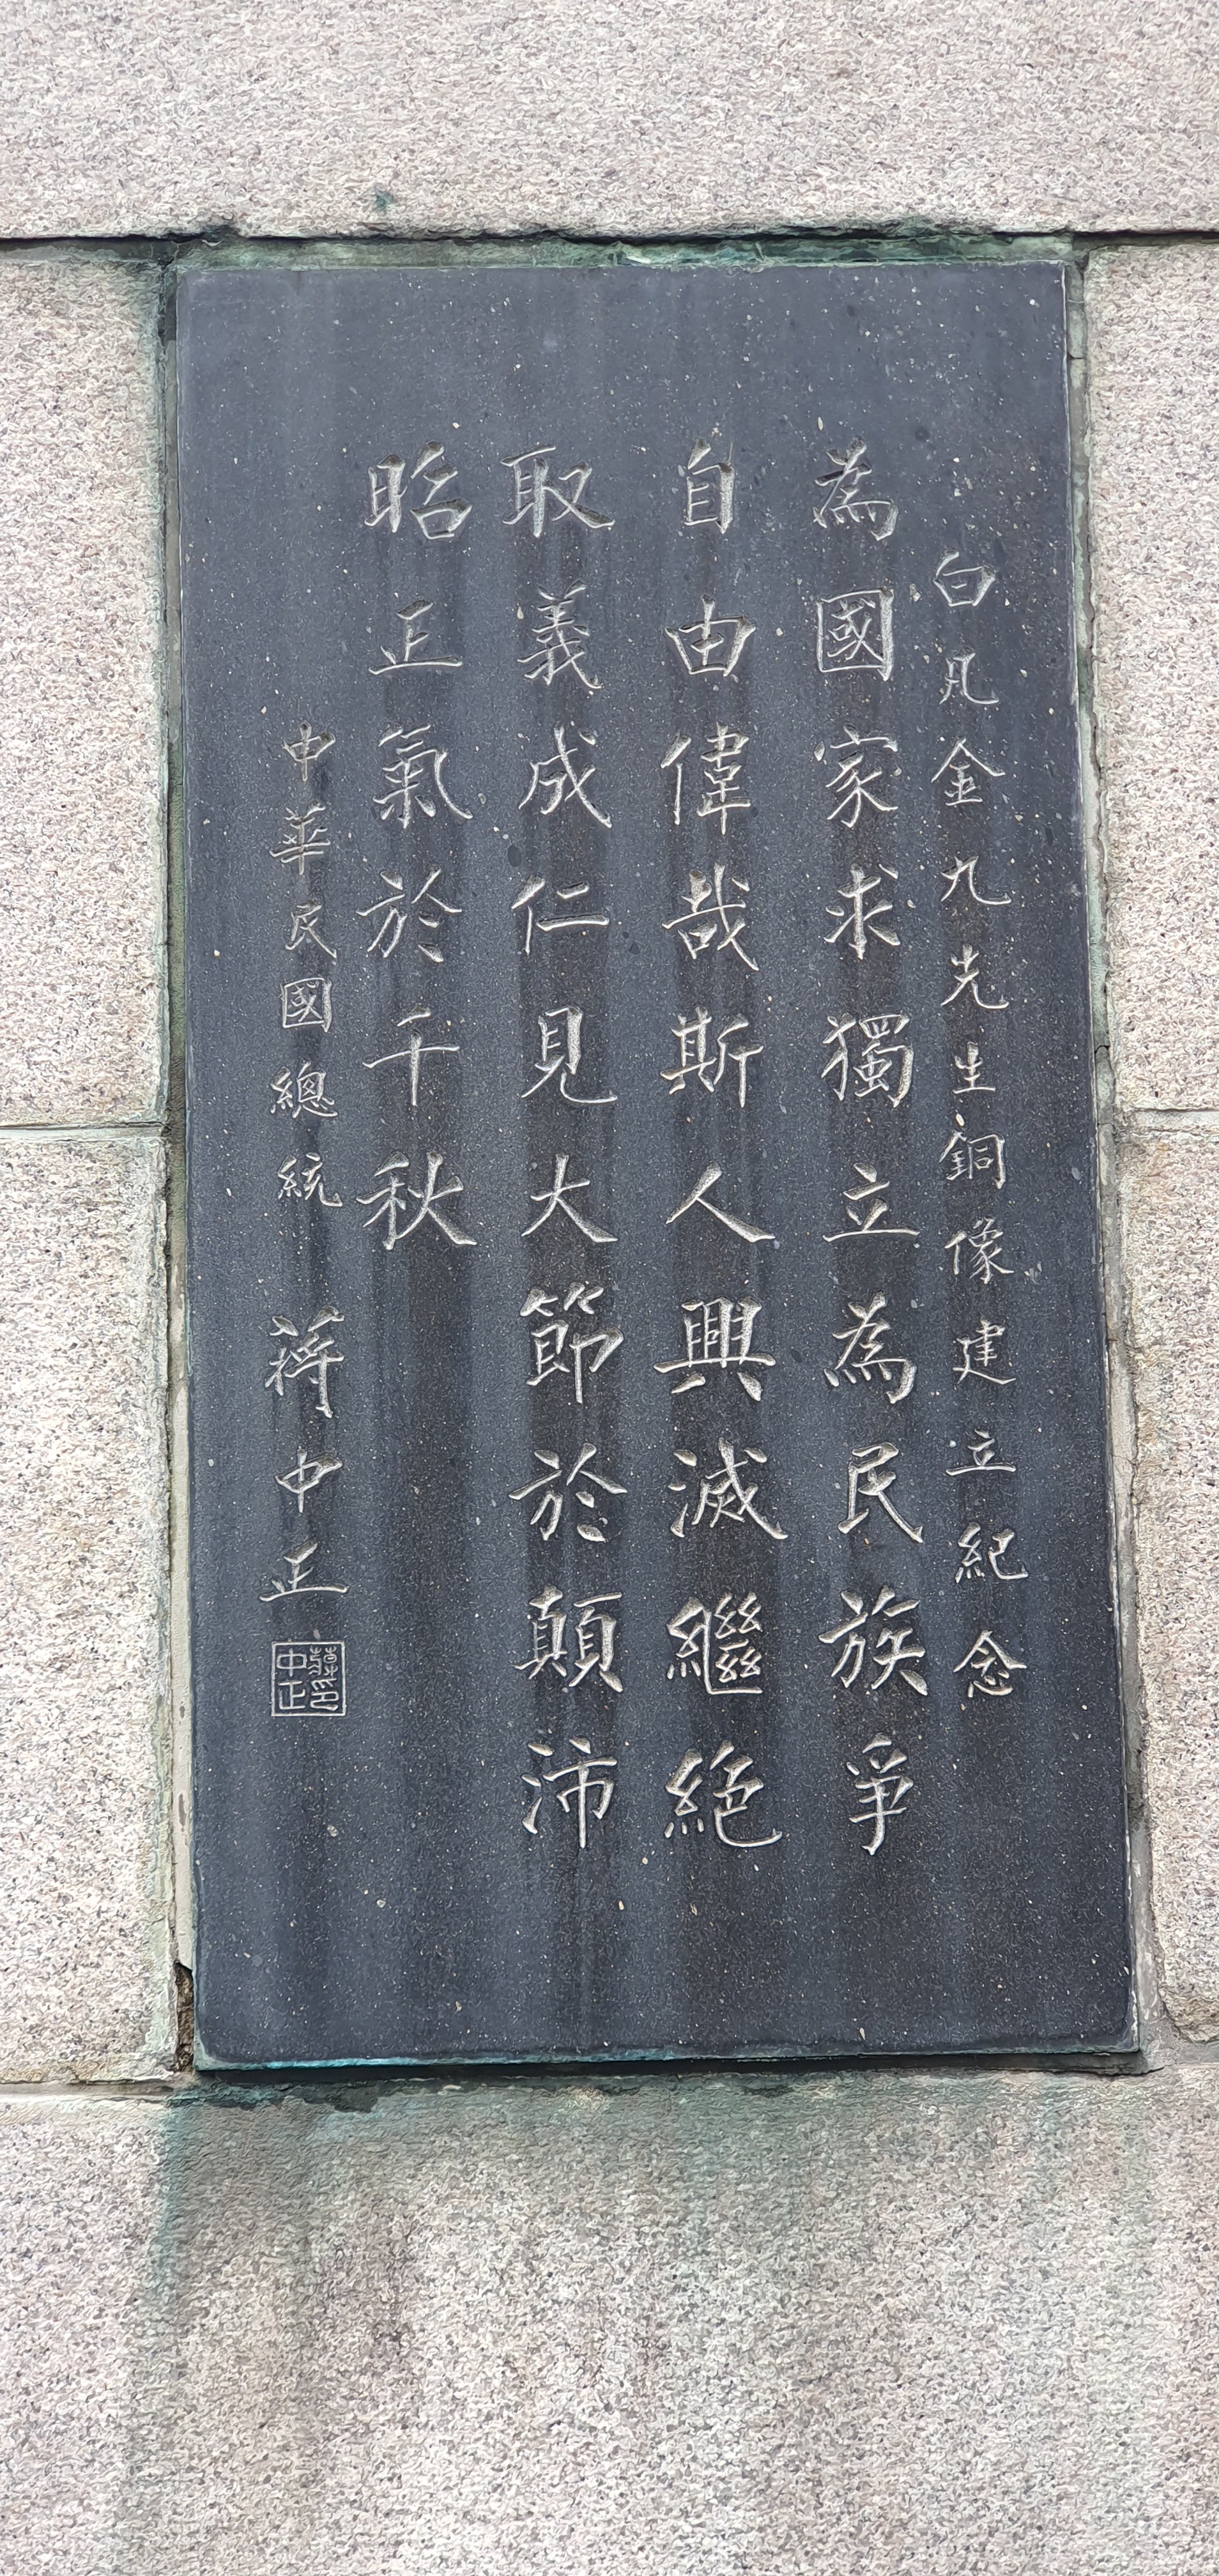 白凡金九先生銅像建立紀念
為國家求獨立為民族爭
自由偉哉斯人興滅繼絕
取義成仁見大節於顛沛
昭正氣於千秋
中華民國總統 蔣中正
蔣印中正